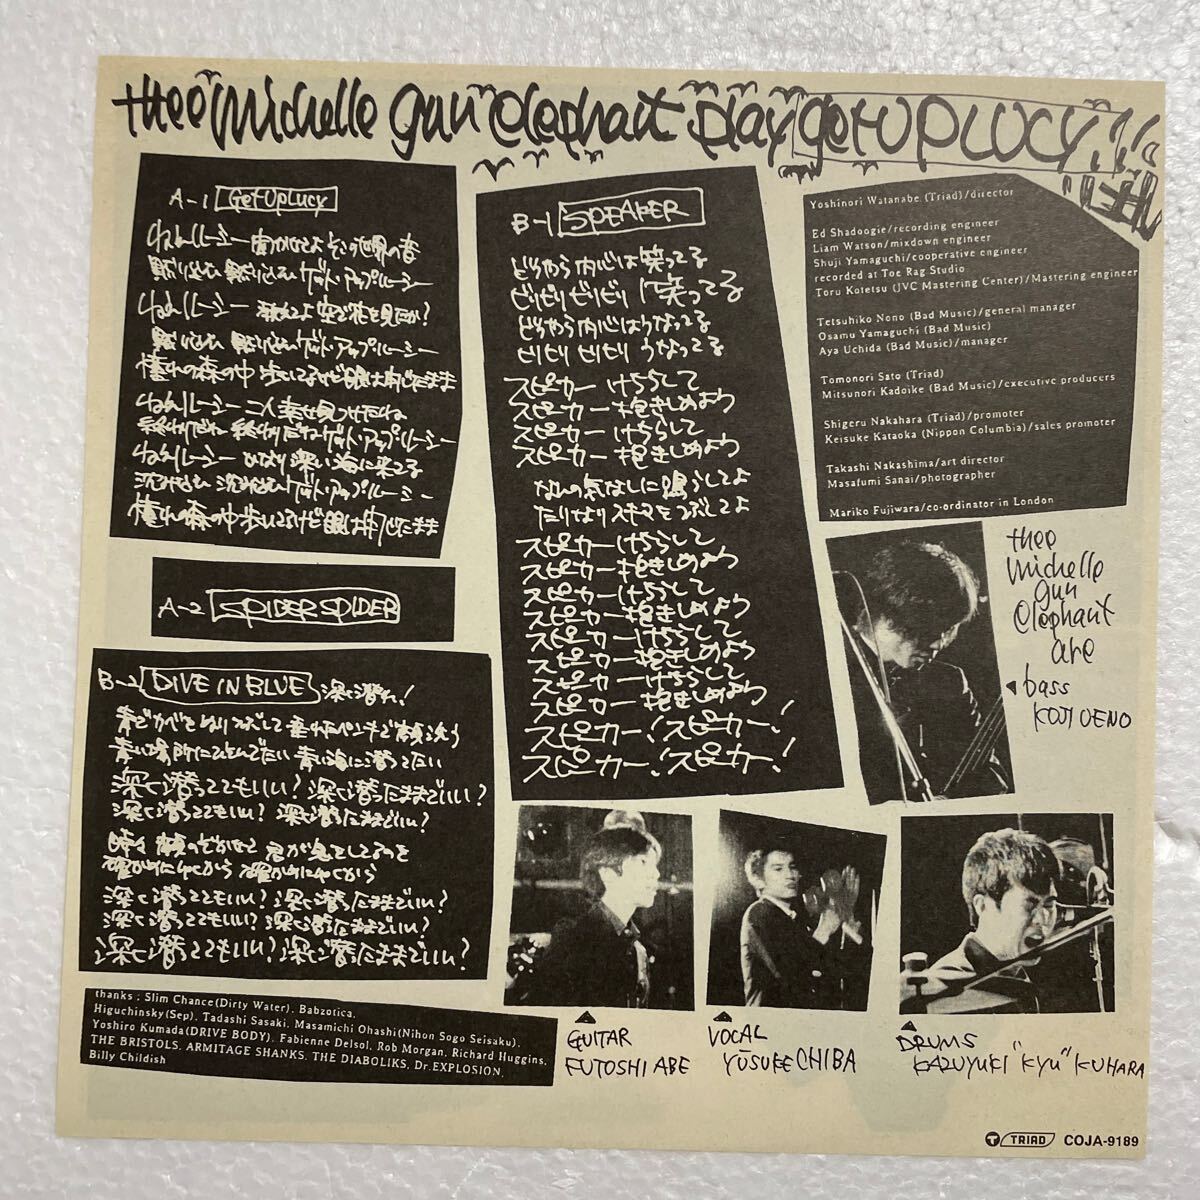 thee michelle gun elephant play get UP LUCY!!
A-1 Get Up Lucy
ねえルーシー 聞かせてよ その世界の音
黙り込む 黙り込む ゲット・アップ・ルーシー
ねえルーシー 教えてよ 空で花を見たか?
黙り込む 黙り込む ゲット・アップ・ルーシー
憧れの森の中 歩いてるけど 眼は閉じたまま
ねえルーシー 二人 幸せ見つけたね
終わりだね 終わりだね ゲット・アップ・ルーシー
ねえルーシー かなり 深い海に来てる
沈み込む 沈み込む ゲット・アップ・ルーシー
憧れの森の中 歩いてるけど 眼は閉じたまま
A-2 SPIDER SPIDER
B-2 DIVE IN BLUE 深く潜れ!
青い場所にとんでたい 青い海に潜ってたい
深く潜っててもいい? 深く潜ったままでいい?
深く潜っててもいい? 深く潜ったままでいい?
時々 顔のぞかせて 君が息をしてるのを
確かめにゆくから 確かめにゆくから
深く潜っててもいい? 深く潜ったままでいい?
深く潜っててもいい? 深く潜ったままでいい?
深く潜っててもいい? 深く潜ったままでいい?
thanks : Slim Chance(Dirty Water). Babzotica.
Higuchinsky(Sep). Tadashi Sasaki. Masamichi Ohashi(Nihon Sogo Seisaku).
Yoshiro Kumada(DRIVE BODY). Fabienne Delsol. Rob Morgan. Richard Huggins.
THE BRISTOLS. ARMITAGE SHANKS. THE DIABOLIKS. Dr.EXPLOSION.
Billy Childish
B-1 SPEAKER
どうやら 内心は 笑ってる
ビリビリ ビリビリ 笑ってる
どうやら 内心は うなってる
ビリビリ ビリビリ うなってる
スピーカー けちらして
スピーカー 抱きしめよう
スピーカー けちらして
スピーカー 抱きしめよう
なんの気なしに 鳴らしてよ
たりないスキマをつぶしてよ
スピーカー けちらして
スピーカー 抱きしめよう
スピーカー けちらして
スピーカー 抱きしめよう
スピーカー けちらして
スピーカー 抱きしめよう
スピーカー けちらして
スピーカー 抱きしめよう
スピーカー! スピーカー!
スピーカー! スピーカー!
Yoshinori Watanabe (Triad)/director
Ed Shadoogie/recording engineer
Liam Watson/mixdown engineer
Shuji Yamaguchi/cooperative engineer
recorded at Toe Rag Studio
Toru Kotetsu (JVC Mastering Center)/Mastering engineer
Tetsuhiko Nono (Bad Music)/general manager
Osamu Yamaguchi (Bad Music)
Aya Uchida (Bad Music)/manager
Tomonori Sato (Triad)
Mitsunori Kadoike (Bad Music)/executive producers
Shigeru Nakahara (Triad)/promoter
Keisuke Kataoka (Nippon Columbia)/sales promoter
Takashi Nakashima/art director
Masafumi Sanai/photographer
Mariko Fujiwara/co-ordinator in London
thee
michelle
gun
elephant
are
bass
KOJI UENO
GUITAR
FUTOSHI ABE
VOCAL
YŪSUKE CHIBA
DRUMS
KAZUYUKI "KYU" KUHARA
TRIAD COJA-9189